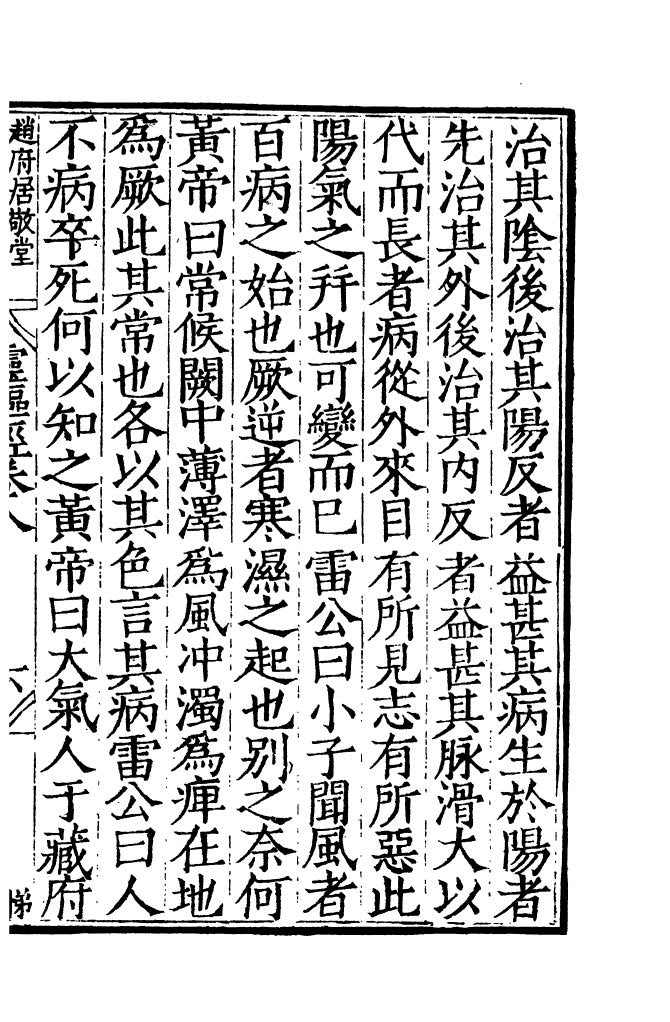 治其陰後治其陽反者益甚其病生於陽者
先治其外後治其内反者益甚其脉滑大以
代而長者病從外來目有所見志有所惡此
陽氣之幷也可變而已雷公曰小子聞風者
百病之始也厥逆者寒濕之起也别之奈何
黃帝曰常候闕中薄澤爲風冲濁爲痺在地
爲厥此其常也各以其色言其病雷公曰人
不病卒死何以知之黃帝曰大氣人于藏府
趙府居敬堂